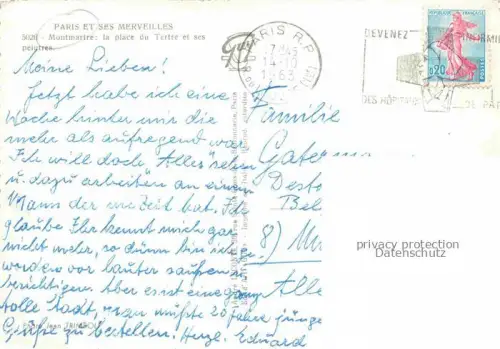 PARIS ET SES MERVEILLES
3020 - Montmartre: la place du Tertre et ses
peintres.
PARIS R.P.
7 H45
14-10
1963
DEVENEZ INFIRMIE
DES HÔP DE PA
REPUBLIQUE FRANÇAISE
0,20
POSTES
Meine Lieben!
Jetzt habe ich eine
Woche hinter mir die
mehr als aufregend war
Ich will doch Alles sehen
u. dazu arbeiten an einem
Mann der nie Zeit hat. Ich
glaube Ihr kennt mich gar
nicht mehr, so dünn bin ich ge-
worden vor lauter
besichtigen. Aber es ist eine ganz
tolle Stadt, man müßte 20 Jahre jünger
Grüße zu bestellen. Herzl. Eduard
Familie
Gate
Dest
Bel
8) M
Alle
privacy protection
Datenschutz